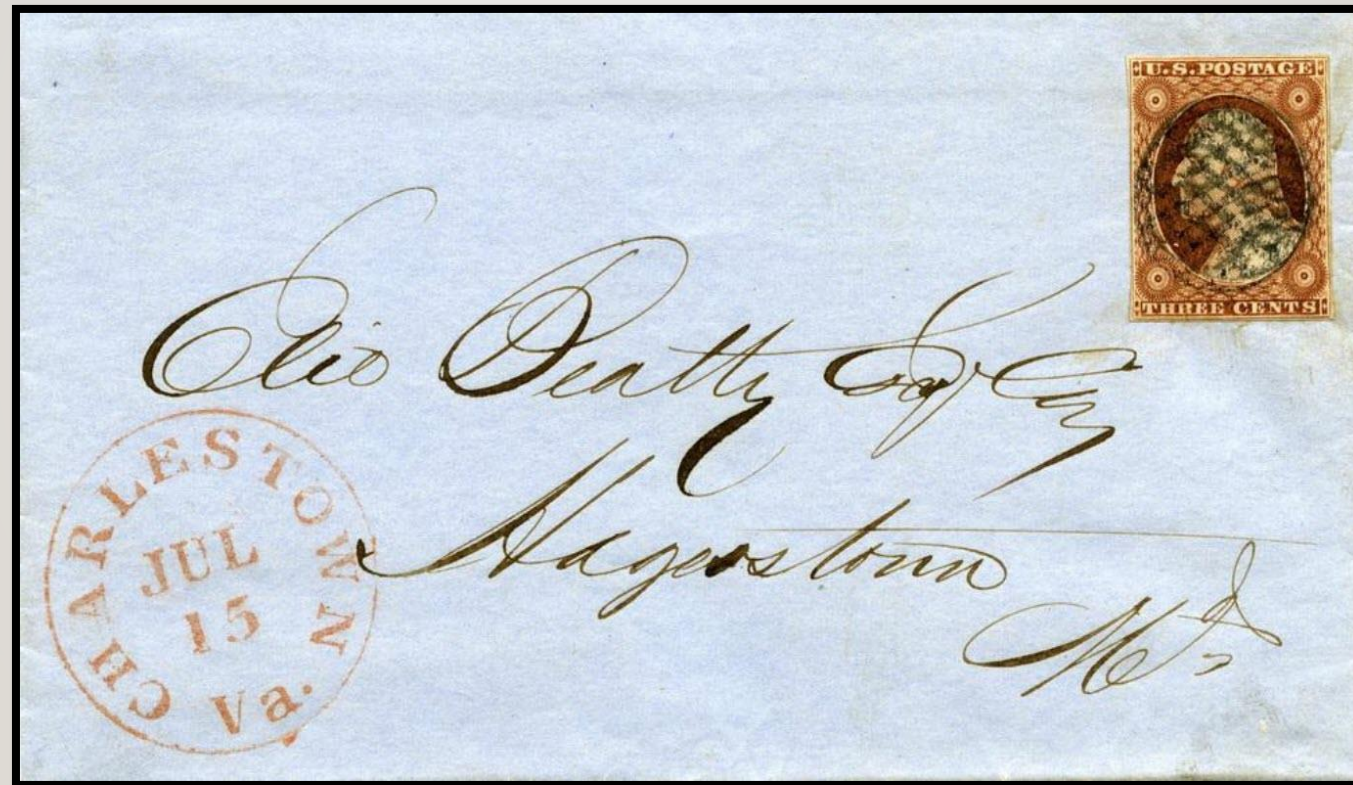 U.S.POSTAGE
THREE CENTS
Elie Beatty Esq Csy
Hagerstown
Md
CHARLESTOWN Va.
JUL
15